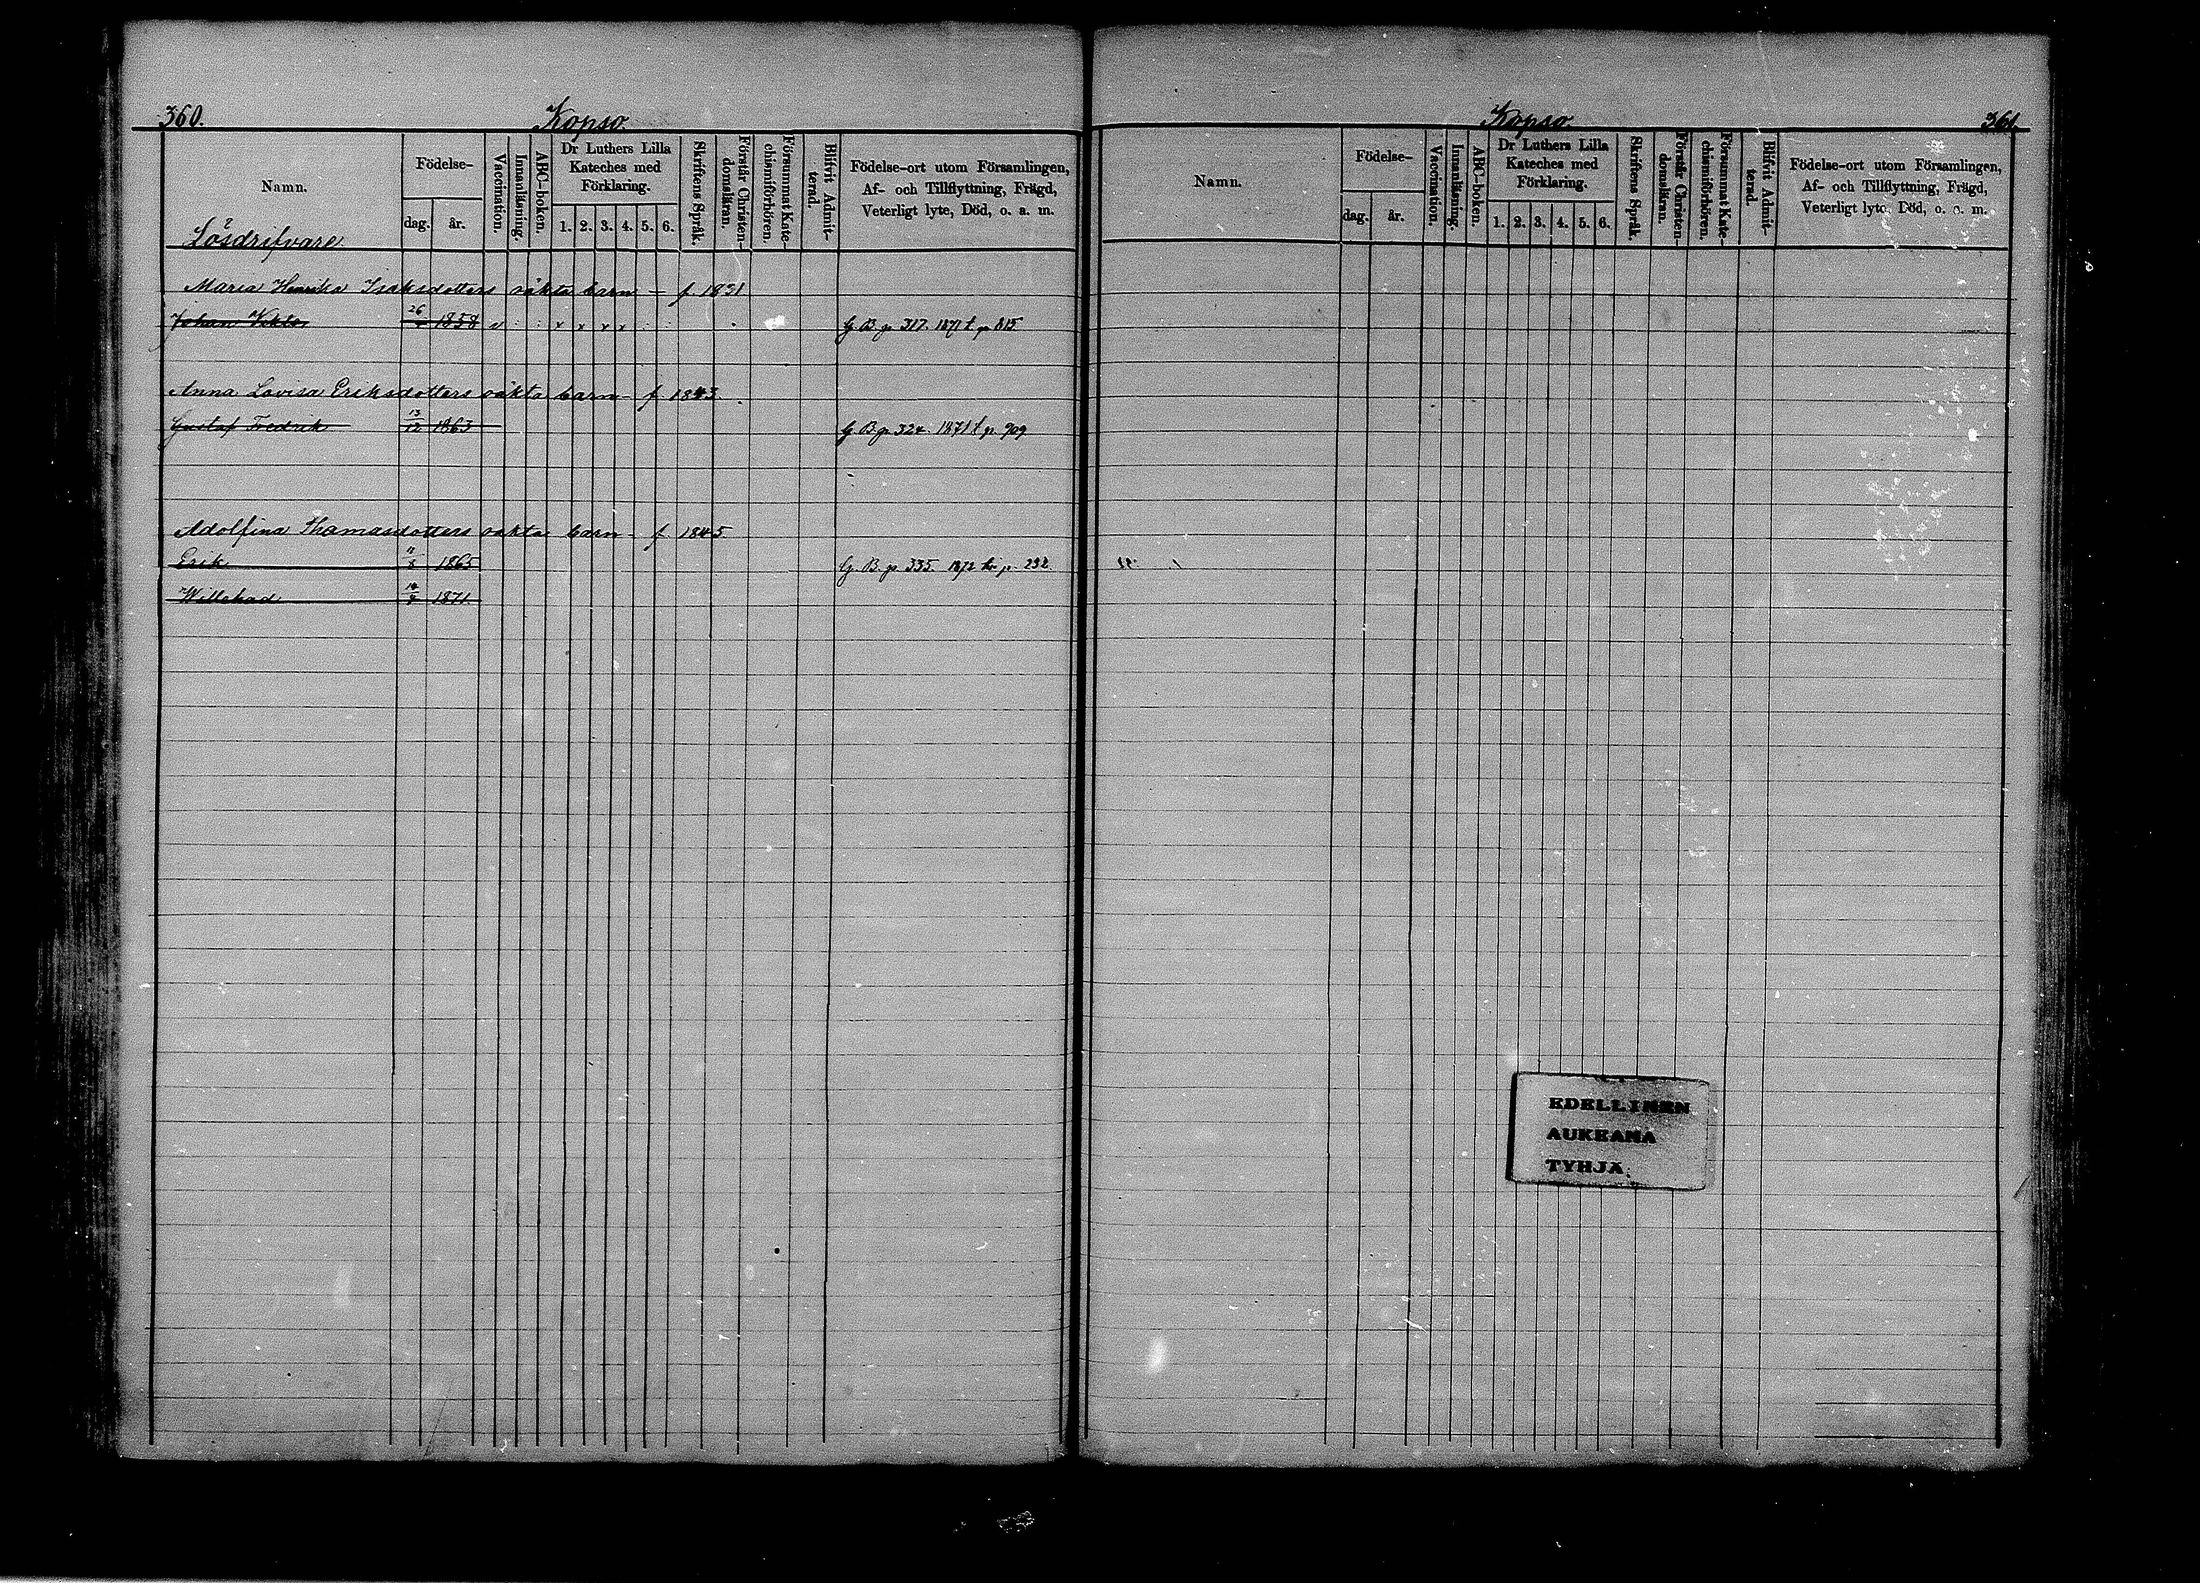 360.
Kopso.
Namn.
Födelse-
dag.
år.
Vaccination.
Innanläsning.
ABC-boken.
Dr Luthers Lilla
Kateches med
Förklaring.
1. 2. 3. 4. 5. 6.
Skriftens Språk.
Förstår Christen-
domsläran.
Försummat Kate-
chismiförhören.
Blifvit Admit-
terad.
Födelse-ort utom Församlingen,
Af- och Tillflyttning, Frägd,
Veterligt lyte, Död, o. a. m.
Lösdrifvare
Maria Henrika Isaksdotters oäkta barn - f. 1831
Johan Viktor 26 1858 x x x x G. B. p. 317. 1871 t. p. 815
Anna Lovisa Eriksdotters oäkta barn - f. 1843.
Gustaf Fredrik 13/12 1863 G. B. p. 324. 1871 t. p. 909
Adolfina Thomasdotters oäkta barn - f. 1845
Erik 11/8 1865 G. B. p. 335. 1872 p. 232
Willehad 1871.
Kopso.
361.
Namn.
Födelse-
dag.
år.
Vaccination.
Innanläsning.
ABC-boken.
Dr Luthers Lilla
Kateches med
Förklaring.
1. 2. 3. 4. 5. 6.
Skriftens Språk.
Förstår Christen-
domsläran.
Försummat Kate-
chismiförhören.
Blifvit Admit-
terad.
Födelse-ort utom Församlingen,
Af- och Tillflyttning, Frägd,
Veterligt lyte, Död, o. a. m.
EDELLINEN
AUKEAMA
TYHJÄ.